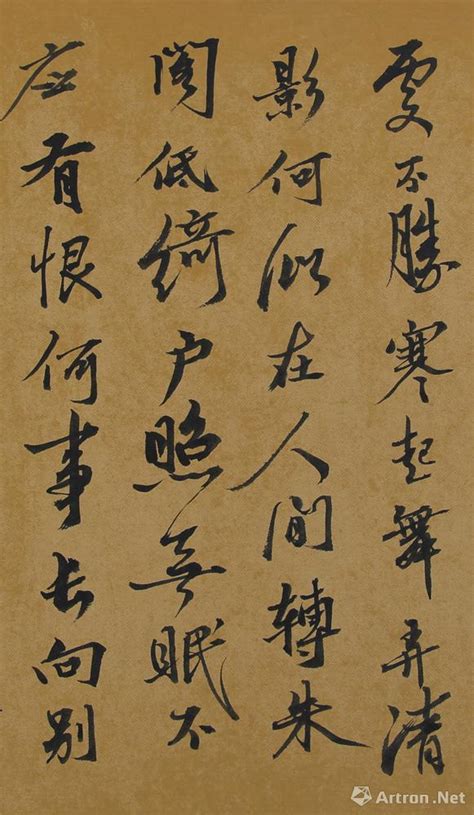 處不勝寒起舞弄清
影何似在人間轉朱
閣低綺户照無眠不
应有恨何事長向别
Artron.Net